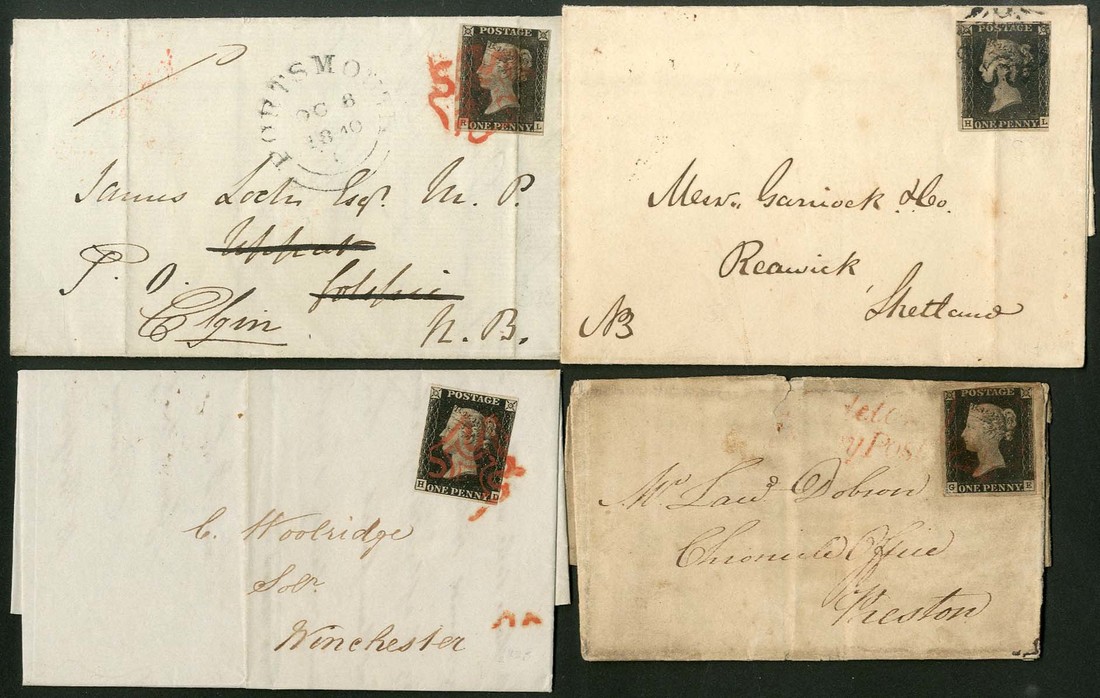 POSTAGE
ONE PENNY
R L
PORTSMOUTH
OC 6
1840
James Loch Esqr. M. P.
P. O.
Elgin
N. B.
POSTAGE
H ONE PENNY L
Messrs Garriock & Co.
Reawick
Shetland
NB
POSTAGE
H ONE PENNY
C. Woolridge
Solr.
Winchester
POSTAGE
G ONE PENNY E
y Post
Mr. Lawd Dobson
Chronicle Office
Preston